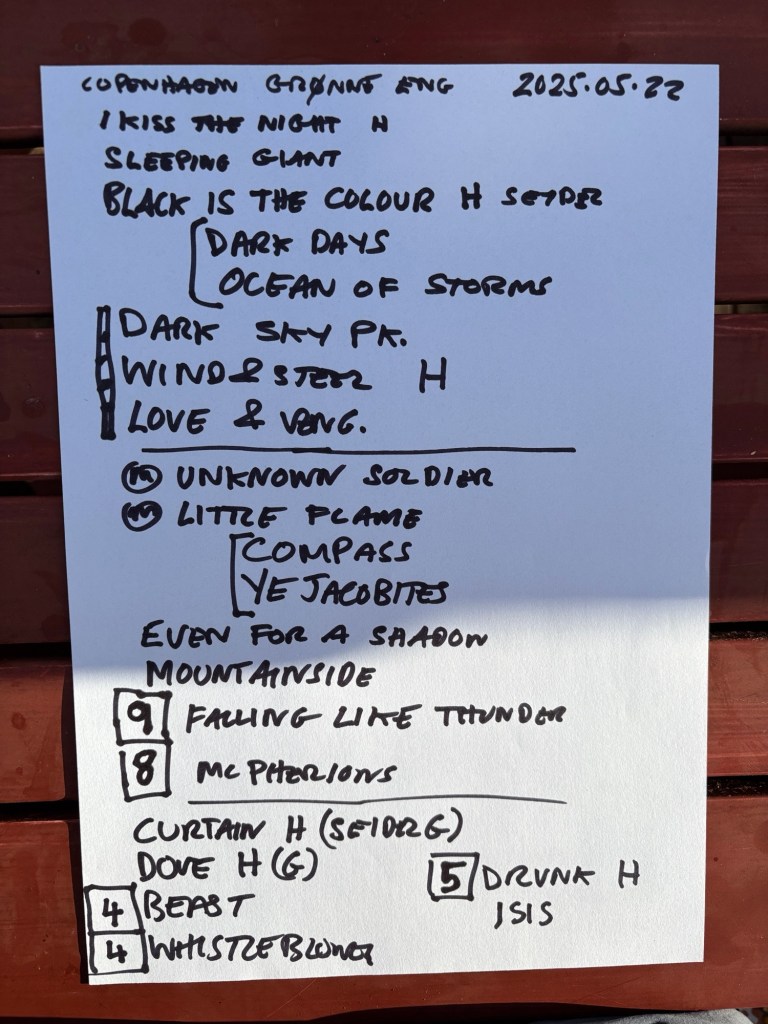 COPENHAGEN GRØNNE ENG 2025.05.22
I KISS THE NIGHT H
SLEEPING GIANT
BLACK IS THE COLOUR H SEYDER
DARK DAYS
OCEAN OF STORMS
DARK SKY PK.
WIND & STEEL H
LOVE & VENG.
M UNKNOWN SOLDIER
M LITTLE FLAME
COMPASS
YE JACOBITES
EVEN FOR A SHADOW
MOUNTAINSIDE
9 FALLING LIKE THUNDER
8 MCPHERSONS
CURTAIN H (SEIDRG)
DOVE H (G)
5 DRUNK H
4 BEAST
ISIS
4 WHISTLEBLOWER